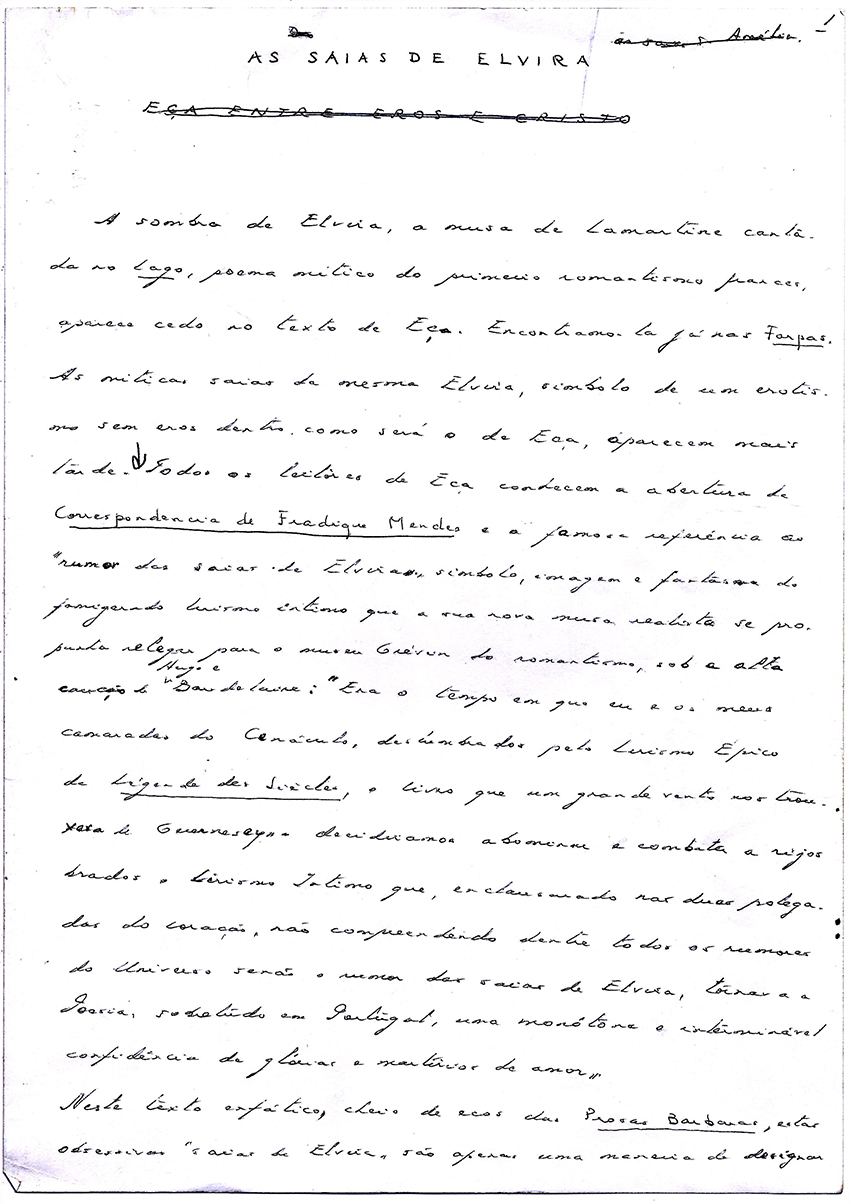 as saias Amélia. 1
AS SAIAS DE ELVIRA
EÇA ENTRE EROS E CRISTO
A sombra de Elvira, a musa de Lamartine cantá-
da no Lago, poema mitico do primeiro romantismo frances,
aparece cedo no texto de Eça. Encontramo-la já nas Farpas.
As miticas saias da mesma Elvira, simbolo de um erotis-
mo sem eros dentro, como será o de Eça, aparecem mais
tarde. Todos os leitores de Eça conhecem a abertura da
Correspondencia de Fradique Mendes e a famosa referência ao
"rumor das saias de Elvira", simbolo, imagem e fantasma do
famigerado lirismo intimo que a sua nova musa realista se pro-
punha relegar para o museu Grévin do romantismo, sob a alta
Hugo e
caução de Baudelaire: "Era o tempo em que eu e os meus
camaradas do Cenáculo, deslumbrados pelo Lirismo Épico
da Légende des Siècles, o livro que um grande vento nos trou-
xera de Guernesey - decidiramos abominar e combater a rijos
brados o Lirismo Intimo que, enclausurado nas duas polega-
das do coração, não compreendendo dentre todos os rumores
do Universo senão o rumor das saias de Elvira, tornara a
Poesia, sobretudo em Portugal, uma monótona e interminável
confidência de glórias e martirios de amor"
Neste texto enfático, cheio de ecos das Prosas Barbaras, estas
obsessivas "saias de Elvira" são apenas uma maneira de designar